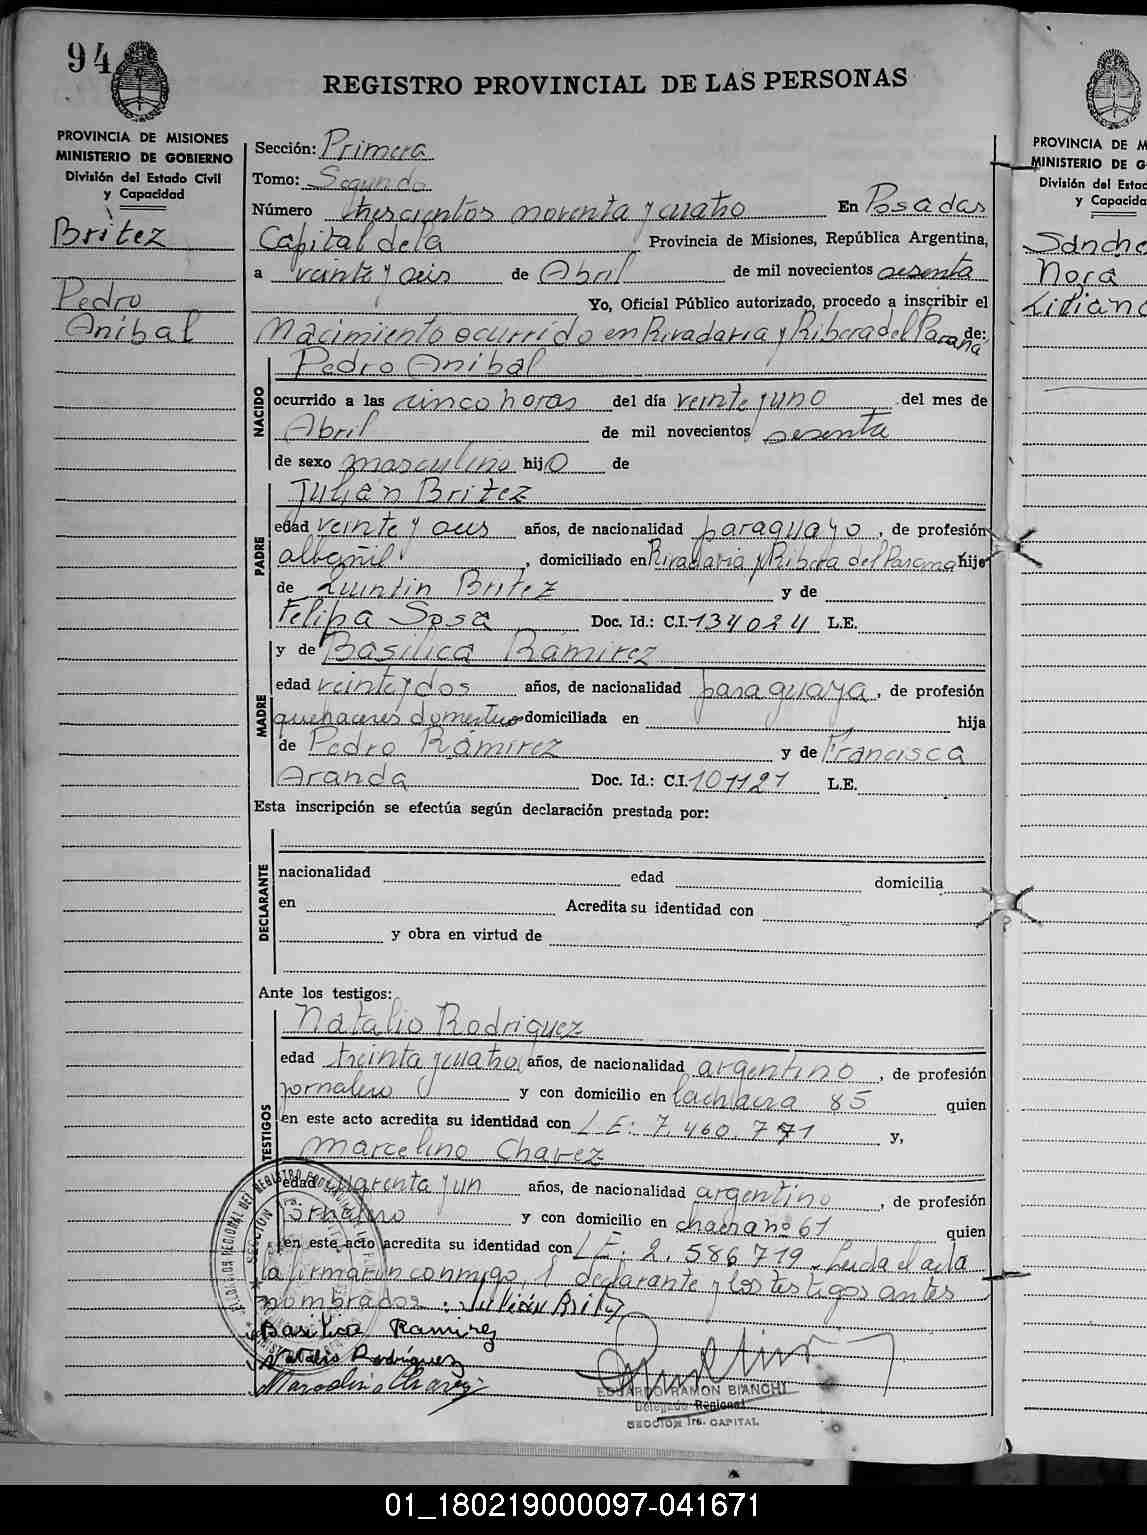 94
REGISTRO PROVINCIAL DE LAS PERSONAS
PROVINCIA DE MISIONES
MINISTERIO DE GOBIERNO
División del Estado Civil
y Capacidad
Britez
Pedro
Anibal
Sección: Primera
Tomo: Segundo
Número trescientos noventa y cuatro En Posadas
Capital de la Provincia de Misiones, República Argentina,
a veinte y seis de Abril de mil novecientos sesenta
Yo, Oficial Público autorizado, procedo a inscribir el
Nacimiento ocurrido en Rivadavia y Ribera del Paraná de:
NACIDO
Pedro Anibal
ocurrido a las cinco horas del día veinte y uno del mes de
Abril de mil novecientos sesenta
de sexo masculino hijo de
PADRE
Julián Britez
edad veinte y seis años, de nacionalidad paraguayo, de profesión
albañil, domiciliado en Rivadavia y Ribera del Parana hijo
de Quintin Britez y de
Felipa Sosa Doc. Id.: C.I. 134024 L.E.
MADRE
y de Basilica Ramirez
edad veinte y dos años, de nacionalidad paraguaya, de profesión
quehaceres domestico domiciliada en hija
de Pedro Ramirez y de Francisca
Aranda Doc. Id.: C.I. 101121 L.E.
Esta inscripción se efectúa según declaración prestada por:
DECLARANTE
nacionalidad edad domicilia
en Acredita su identidad con
y obra en virtud de
Ante los testigos:
TESTIGOS
Natalio Rodriguez
edad treinta y cuatro años, de nacionalidad argentino, de profesión
jornalero y con domicilio en la chacra 85 quien
en este acto acredita su identidad con L E: 7.460.771 y,
Marcelino Chavez
edad cuarenta y un años, de nacionalidad argentino, de profesión
jornalero y con domicilio en chacra nº 61 quien
en este acto acredita su identidad con L E. 2.586719. Leida el acta
la firmaron conmigo, el declarante y los testigos antes
nombrados. Julián Britez
Basilica Ramirez
Natalio Rodríguez
Marcelino Chavez
EDUARDO RAMON BIANCHI
Delegado Regional
SECCION 1ra. CAPITAL
PROVINCIA DE M
MINISTERIO DE G
División del Estad
y Capacida
Sanche
Nora
Liliana
01_180219000097-041671